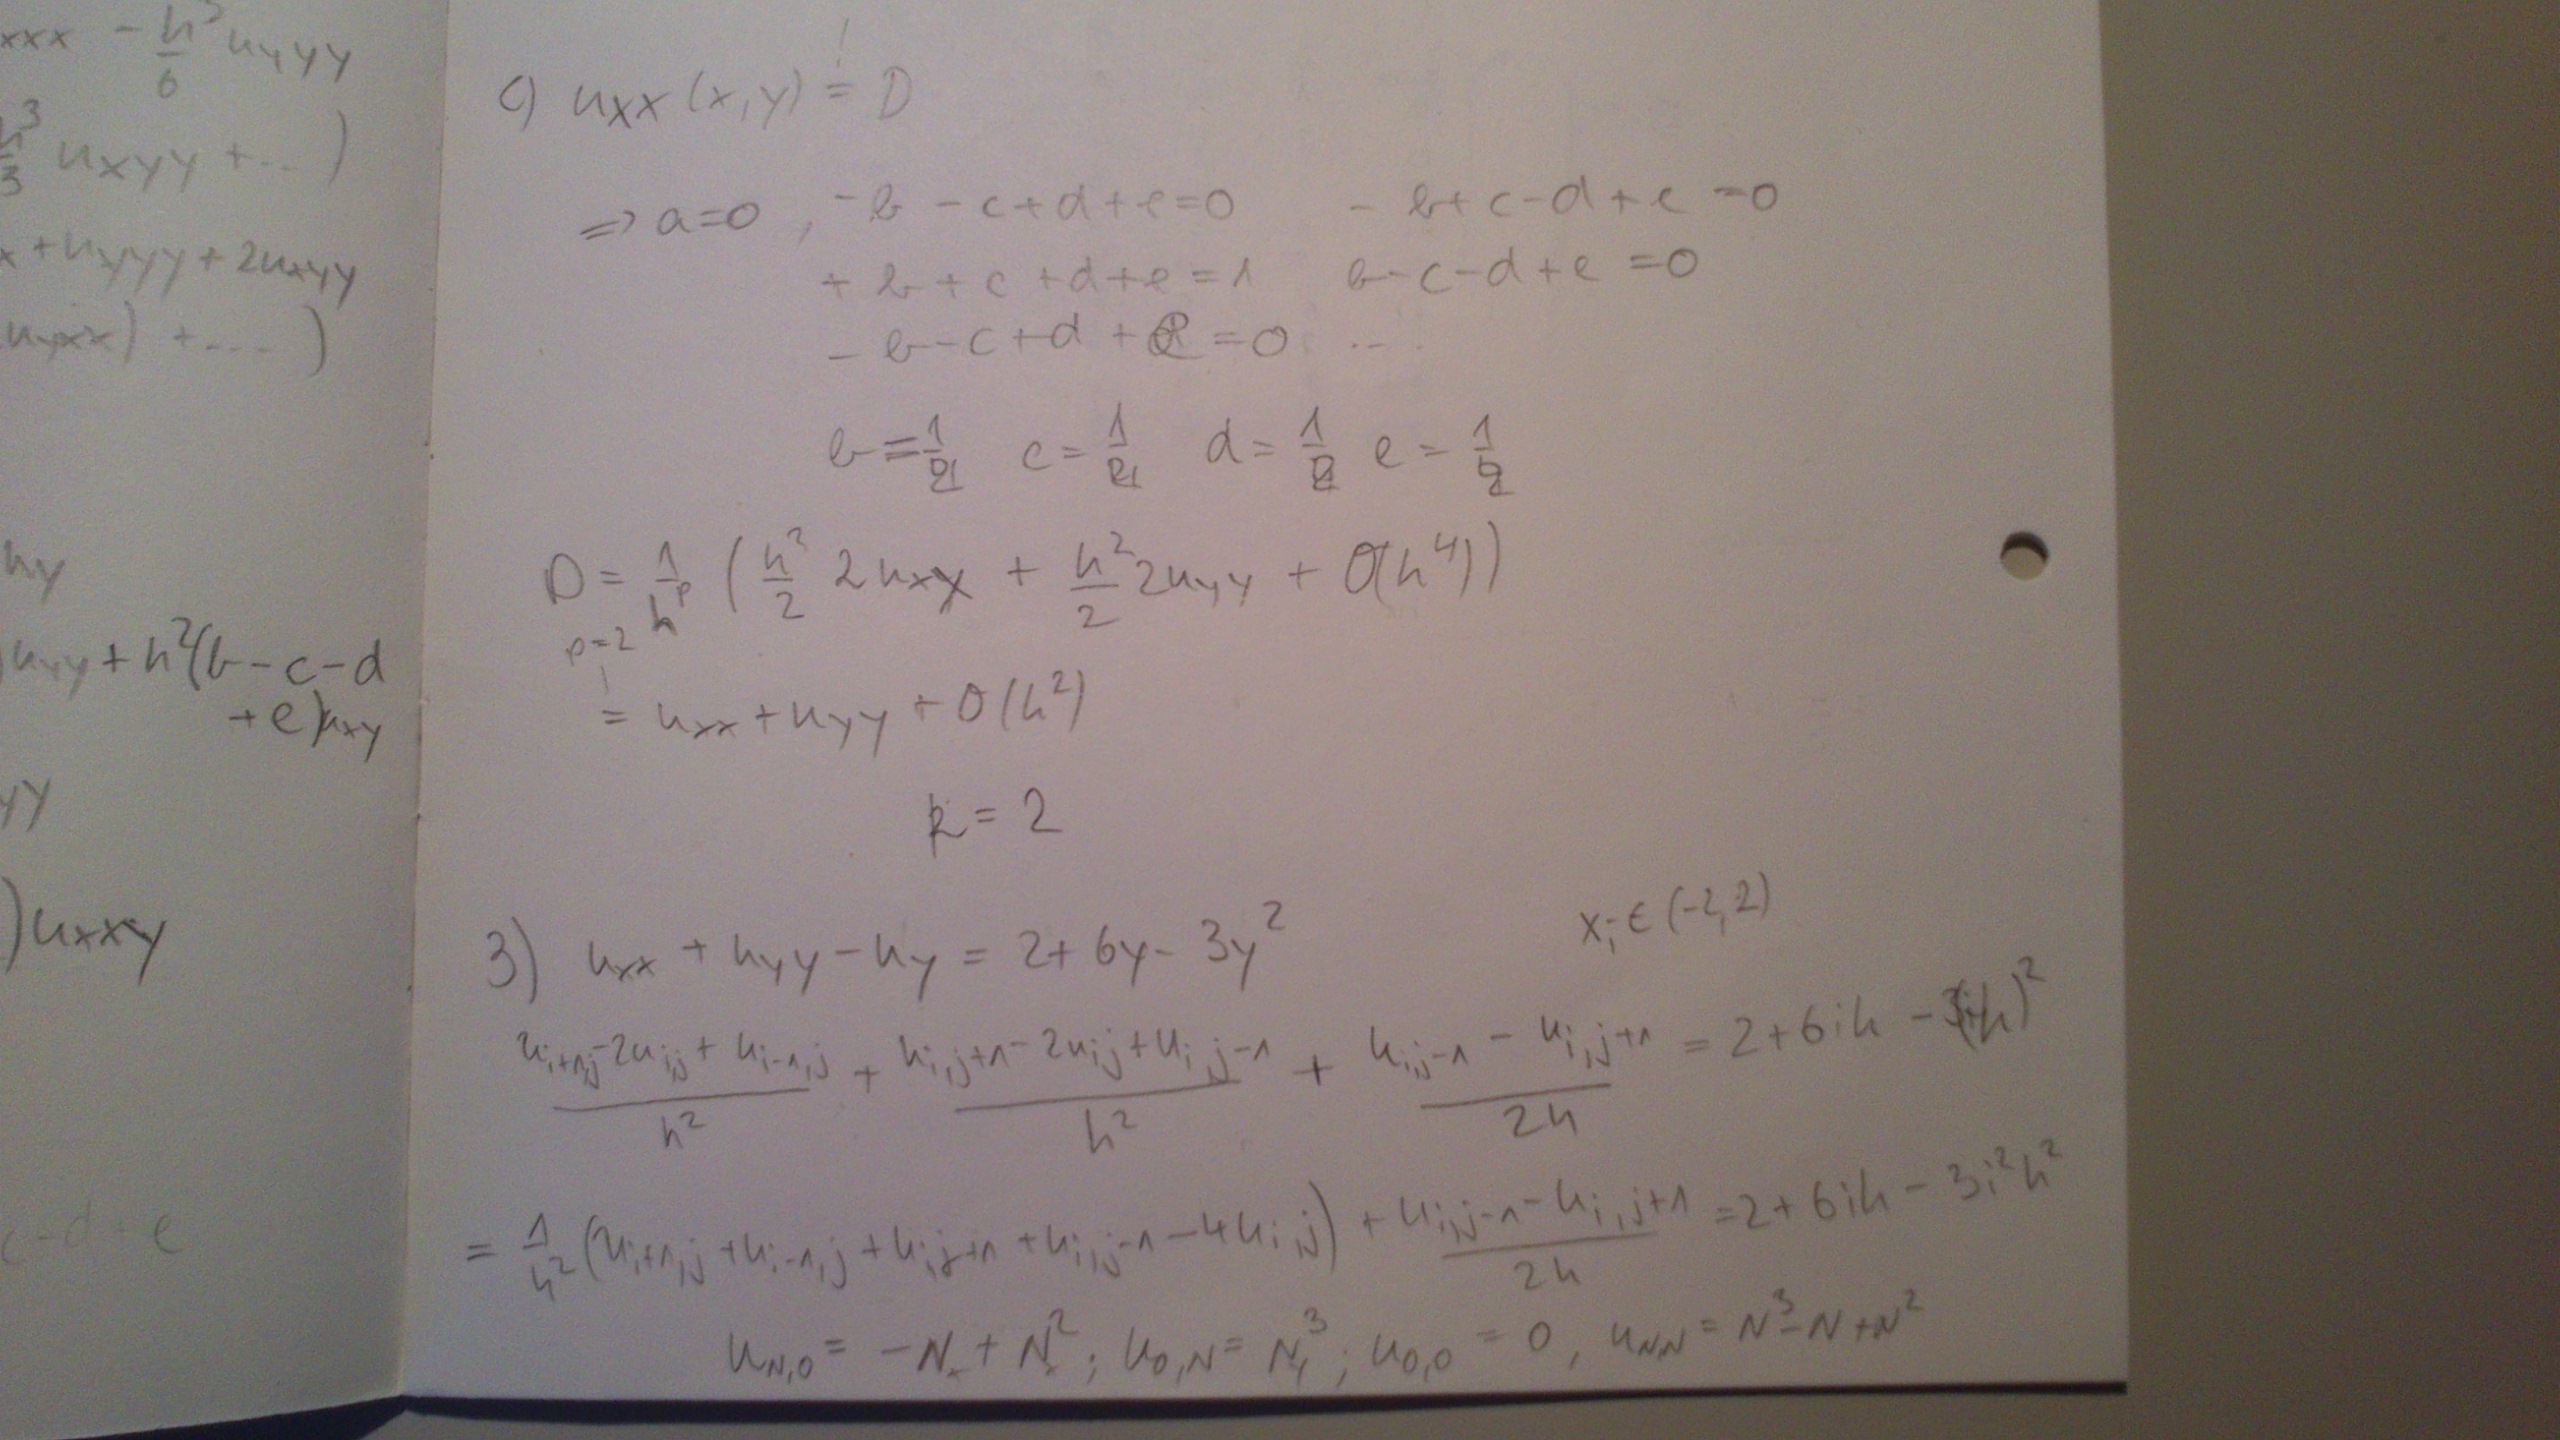 xxx - h³/6 uyyy
h³/3 uxyy + ... )
x + uyyy + 2uxyy
uyxx) + .... )
hy
)uyy + h²(b - c - d
+ e)uxy
yy
)uxxy
c - d + e
c) uxx (x,y) = D
=> a=0 , -b - c + d + e = 0 - b + c - d + e = 0
+ b + c + d + e = 1 b - c - d + e = 0
- b - c + d + e = 0 ...
b = 1/ c = 1/ d = 1/ e = 1/
D = 1/h^p ( h²/2 2uxx + h²/2 2uyy + O(h⁴))
p=2
= uxx + uyy + O(h²)
k = 2
3) uxx + uyy - uy = 2 + 6y - 3y² xi ∈ (-2,2)
(ui+1,j - 2ui,j + ui-1,j)/h² + (ui,j+1 - 2ui,j + ui,j-1)/h² + (ui,j-1 - ui,j+1)/2h = 2 + 6ih - 3(ih)²
= 1/h² (ui+1,j + ui-1,j + ui,j+1 + ui,j-1 - 4ui,j) + (ui,j-1 - ui,j+1)/2h = 2 + 6ih - 3i²h²
uN,0 = -N + N² ; u0,N = N³ ; u0,0 = 0 , uNN = N³ - N + N²